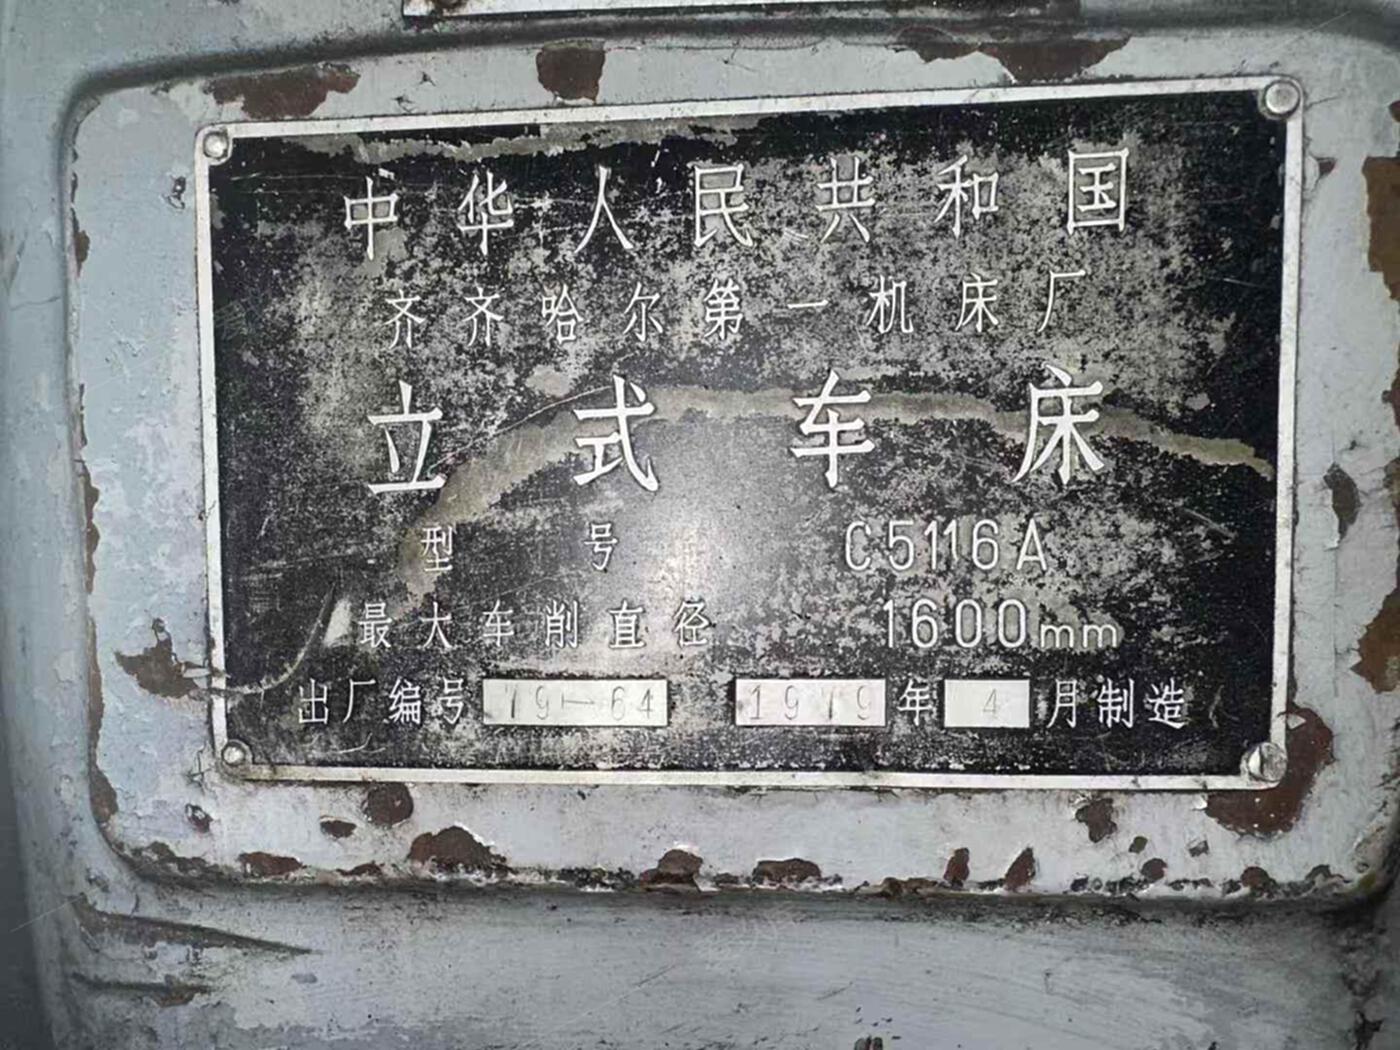 中华人民共和国
齐齐哈尔第一机床厂
立式车床
型号 C5116A
最大车削直径 1600mm
出厂编号 79-64 1979年4月制造